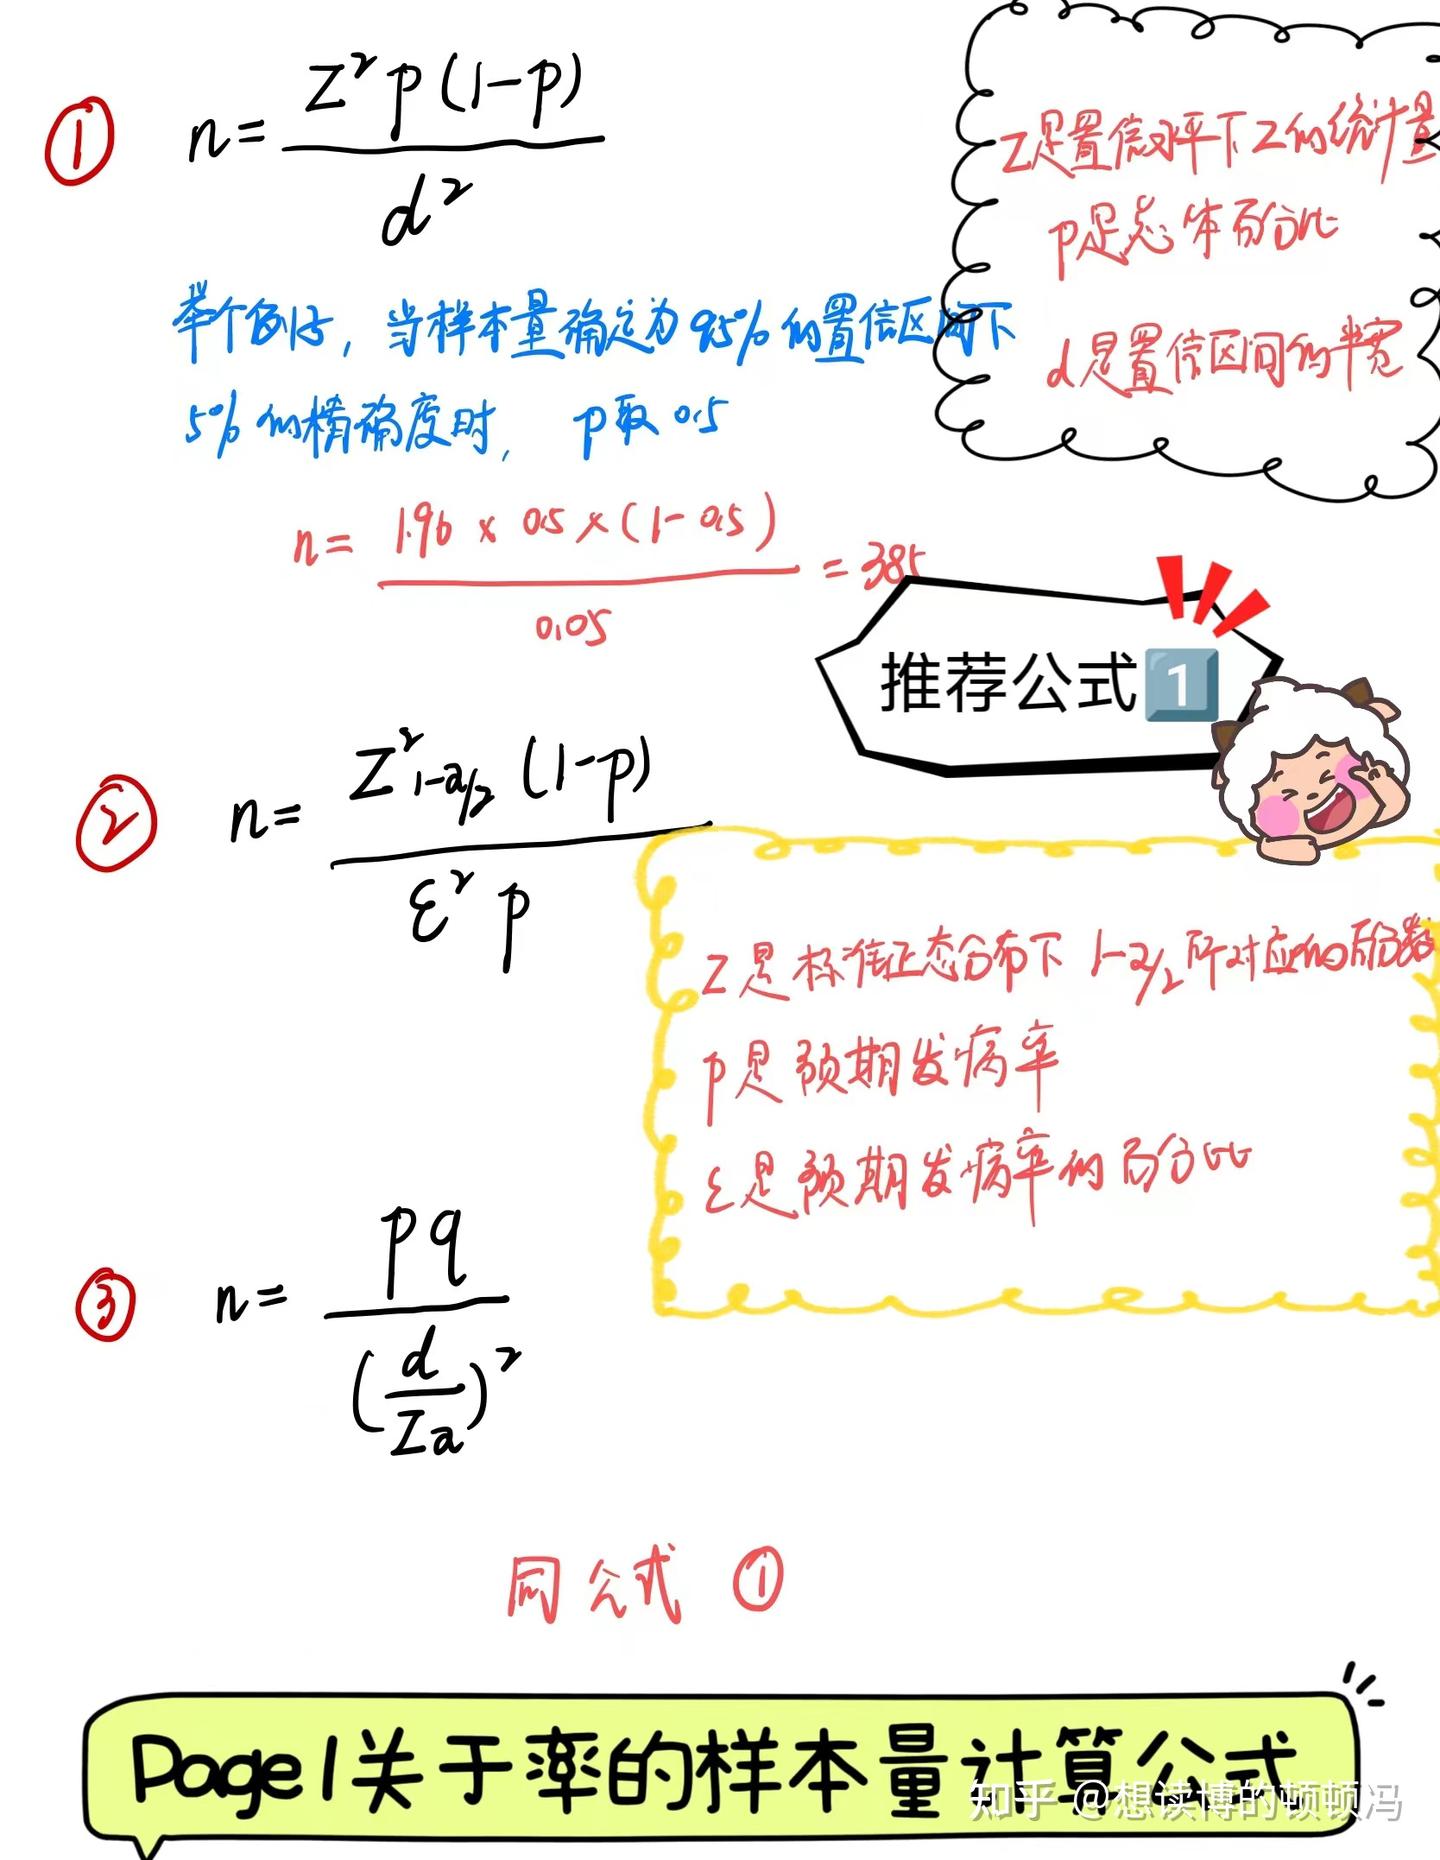 ① n= Z²p(1-p) / d²
Z是置信水平下Z的统计量
p是总体百分比
d是置信区间的半宽
举个例子，当样本量确定为95%的置信区间下
5%的精确度时，p取0.5
n= 1.96×0.5×(1-0.5) / 0.05 =385
推荐公式1️⃣
② n= Z²1-a/2 (1-p) / ε² p
Z是标准正态分布下1-a/2所对应的百分数
p是预期发病率
ε是预期发病率的百分比
③ n= pq / (d/Za)²
同公式①
Page1关于率的样本量计算公式
知乎 @想读博的顿顿冯